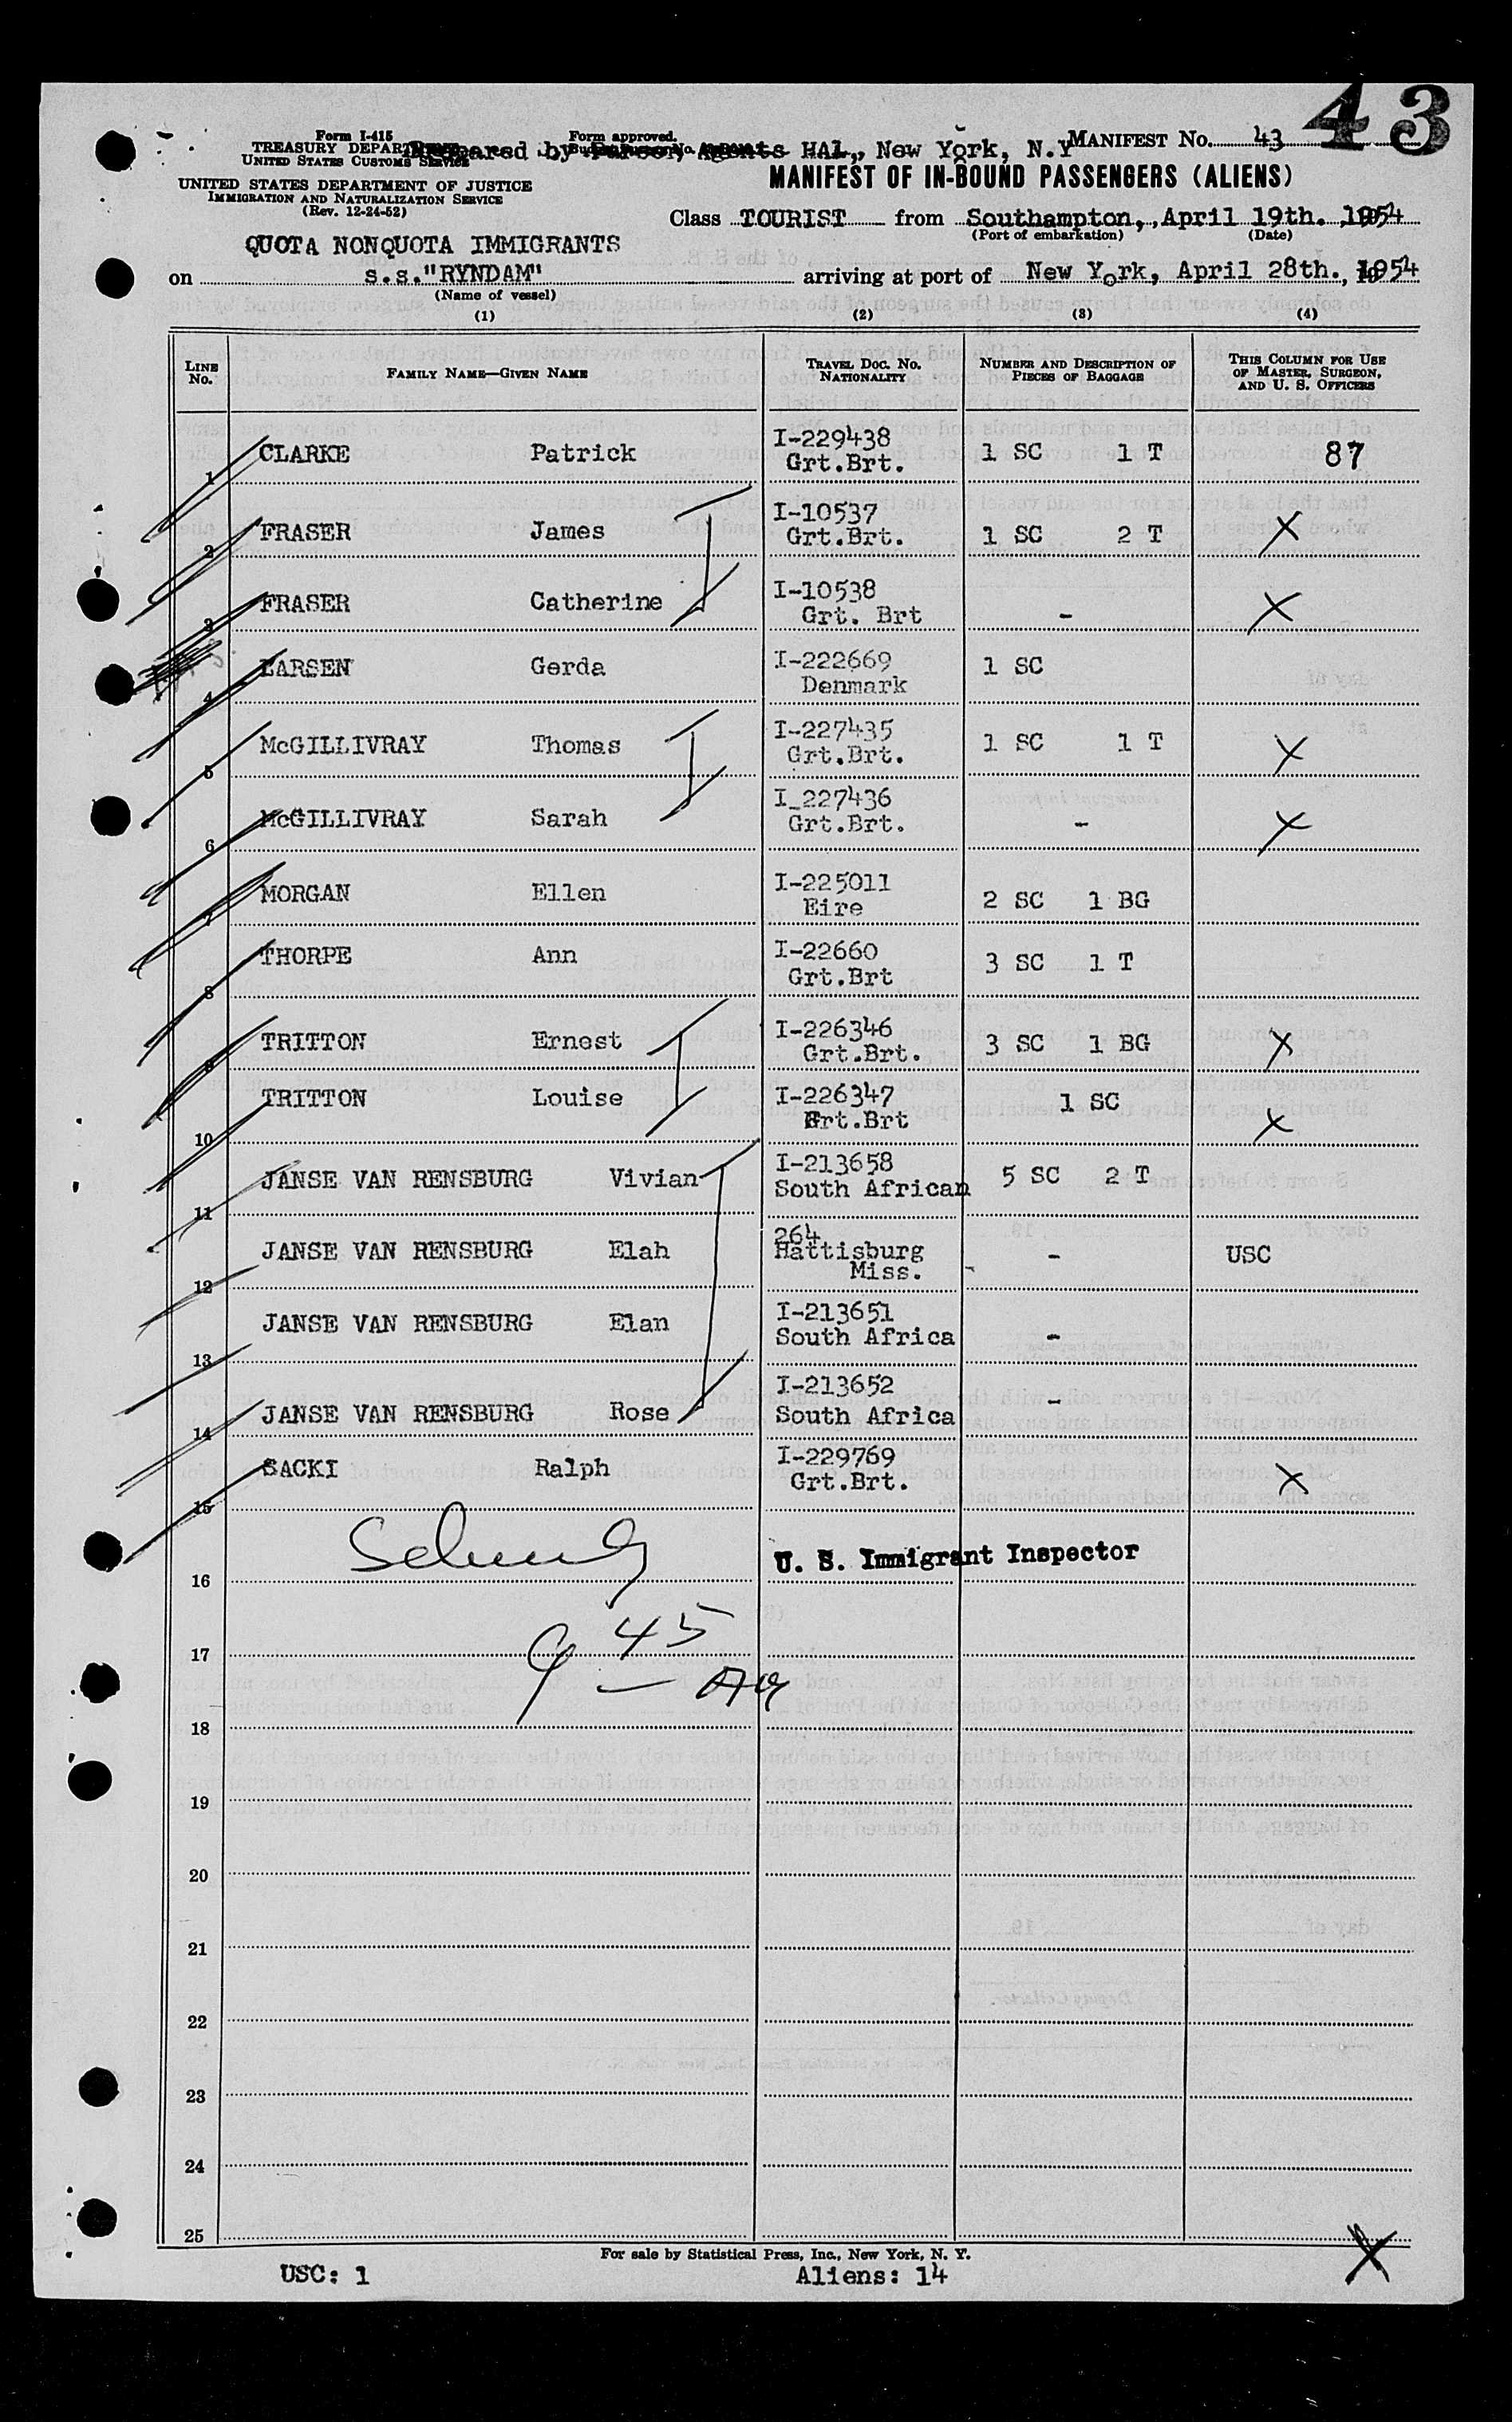 43
Form I-415
TREASURY DEPARTMENT
UNITED STATES CUSTOMS SERVICE
Form approved.
Prepared by Purser, Agents HAL, New York, N.Y
MANIFEST No. 43
UNITED STATES DEPARTMENT OF JUSTICE
IMMIGRATION AND NATURALIZATION SERVICE
(Rev. 12-24-52)
MANIFEST OF IN-BOUND PASSENGERS (ALIENS)
Class TOURIST from Southampton, April 19th. 1954
(Port of embarkation) (Date)
QUOTA NONQUOTA IMMIGRANTS
on s.s."RYNDAM" arriving at port of New York, April 28th., 1954
(Name of vessel)
(1) (2) (3) (4)
LINE No. FAMILY NAME—GIVEN NAME TRAVEL DOC. NO. NATIONALITY NUMBER AND DESCRIPTION OF PIECES OF BAGGAGE THIS COLUMN FOR USE OF MASTER, SURGEON, AND U. S. OFFICERS
1 CLARKE Patrick I-229438 Grt.Brt. 1 SC 1 T 87
2 FRASER James I-10537 Grt.Brt. 1 SC 2 T X
3 FRASER Catherine I-10538 Grt. Brt - X
4 LARSEN Gerda I-222669 Denmark 1 SC
5 McGILLIVRAY Thomas I-227435 Grt.Brt. 1 SC 1 T X
6 McGILLIVRAY Sarah I_227436 Grt.Brt. - X
7 MORGAN Ellen I-225011 Eire 2 SC 1 BG
8 THORPE Ann I-22660 Grt.Brt 3 SC 1 T
9 TRITTON Ernest I-226346 Grt.Brt. 3 SC 1 BG X
10 TRITTON Louise I-226347 Grt.Brt 1 SC X
11 JANSE VAN RENSBURG Vivian I-213658 South African 5 SC 2 T
12 JANSE VAN RENSBURG Elah 264 Hattisburg Miss. - USC
13 JANSE VAN RENSBURG Elan I-213651 South Africa -
14 JANSE VAN RENSBURG Rose I-213652 South Africa -
15 SACKI Ralph I-229769 Grt.Brt. X
16 U. S. Immigrant Inspector
17 9 45
18
19
20
21
22
23
24
25
For sale by Statistical Press, Inc., New York, N. Y.
USC: 1 Aliens: 14 X